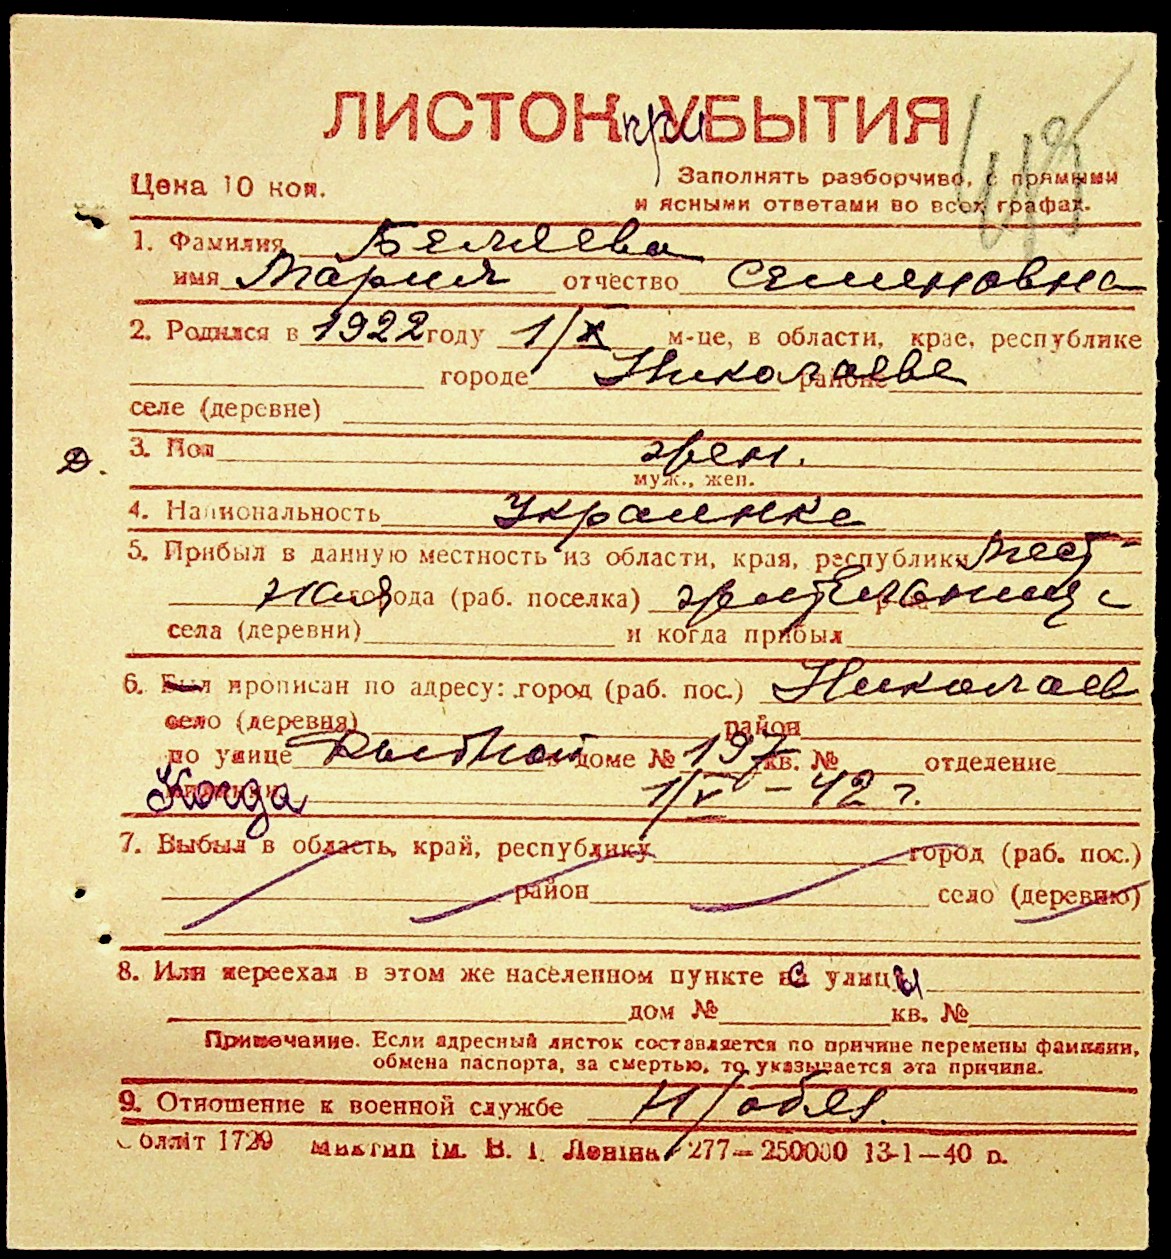 ЛИСТОК при УБЫТИЯ
Цена 10 коп.
Заполнять разборчиво, с прямыми
и ясными ответами во всех графах.
1. Фамилия Беляева
имя Мария отчество Семеновна
2. Родился в 1922 году 1/X м-це, в области, крае, республике
городе Николаеве районе
селе (деревне)
Д.
3. Пол жен.
муж., жен.
4. Национальность Украинка
5. Прибыл в данную местность из области, края, республики Мест-
ная города (раб. поселка) жительница
села (деревни) и когда прибыл
6. Был прописан по адресу: город (раб. пос.) Николаев
село (деревня) район
по улице Рыбной в доме № 197 кв. № отделение
Когда 1/V – 42 г.
7. Выбыл в область, край, республику город (раб. пос.)
район село (деревню)
8. Или переехал в этом же населенном пункте с улицы
дом № кв. №
Примечание. Если адресный листок составляется по причине перемены фамилии,
обмена паспорта, за смертью, то указывается эта причина.
9. Отношение к военной службе н/обяз.
Облліт 1729 Миктип ім. В. І. Леніна 277—250000 13-1—40 р.